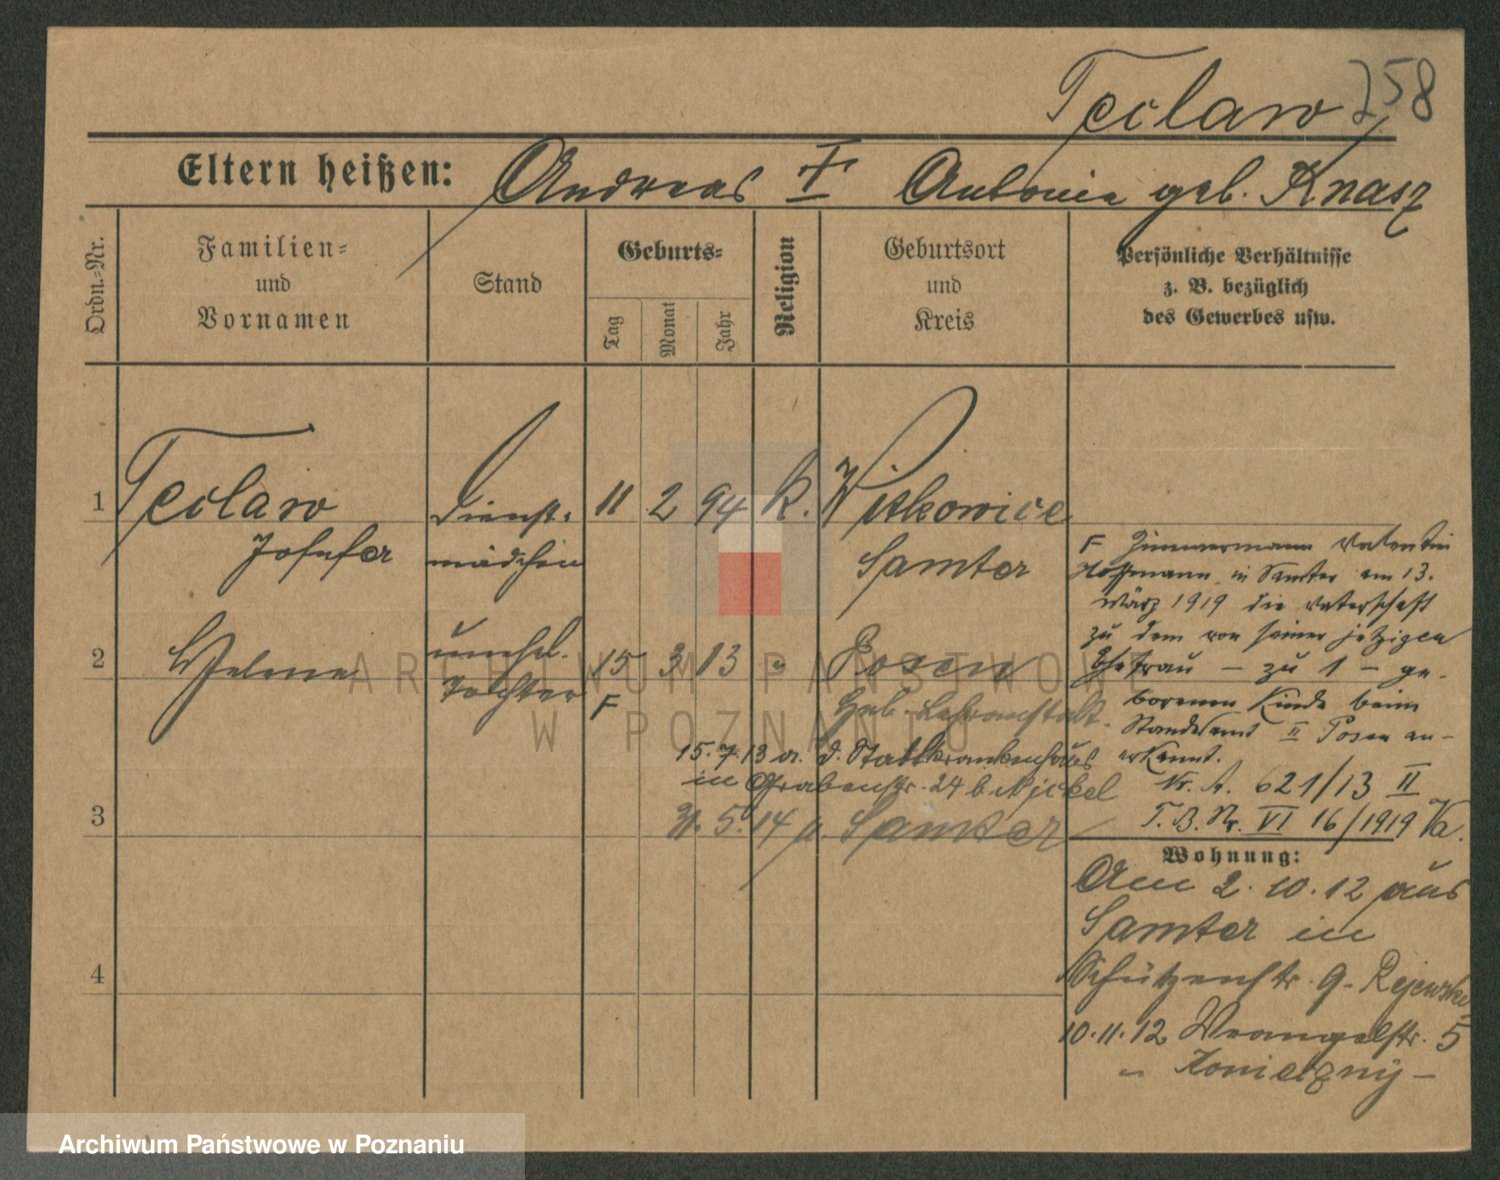 Teclaw 258
Eltern heißen: Andreas † Antonie geb. Knasz
Ordn.-Nr.
Familien-
und
Vornamen
Stand
Geburts-
Tag
Monat
Jahr
Religion
Geburtsort
und
Kreis
Persönliche Verhältnisse
z. B. bezüglich
des Gewerbes usw.
1 Teclaw Dienst- 11 2 94 K. Witkowice
Josefa mädchen Samter
F Zimmermann Valentin
Hoffmann in Samter am 13.
März 1919 die Vaterschaft
zu dem von seiner jetzigen
Ehefrau – zu 1 – ge-
borenen Kinde beim
Standesamt II Posen an-
erkannt.
Nr. A. 621/13 II
T. B. Nr. VI 16/1919
2 Helena unehel. 15 3 13 " Posen
Tochter F Geb. Lehranstalt.
15.7.13 a. d. Stadtkrankenhaus
in Grabenstr. 24 b
3 5. 14 Samter
4
Wohnung:
Am 2.10.12 aus
Samter in
Schützenstr. 9 - Rejewski
10.11.12 Wrangelstr. 5
"
ARCHIWUM PAŃSTWOWE
W POZNANIU
Archiwum Państwowe w Poznaniu